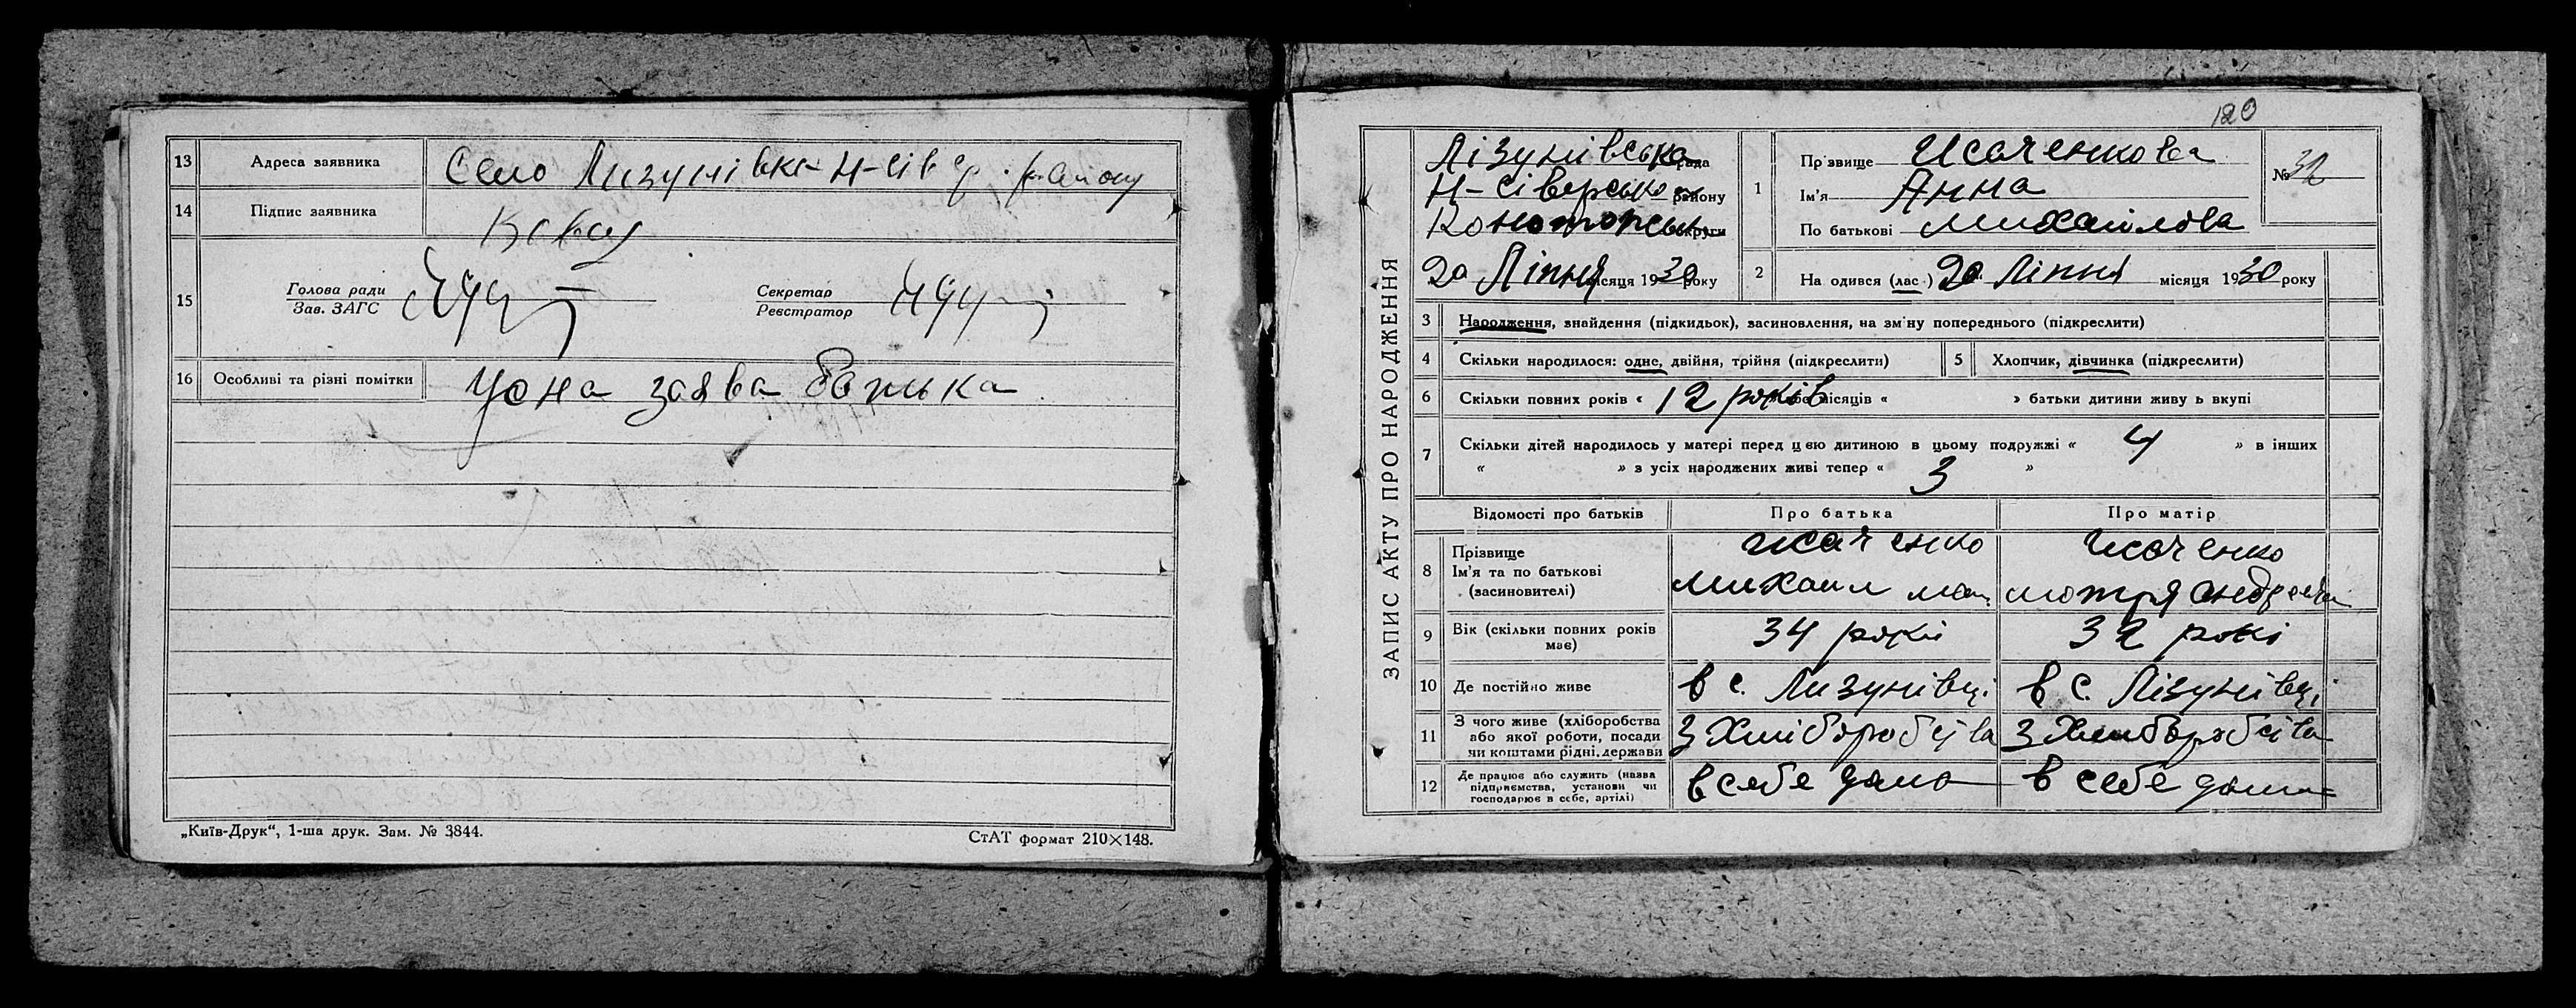 13 Адреса заявника Село Лизунівка Н-Сівер. району
14 Підпис заявника
15 Голова ради
Зав. ЗАГС
Секретар
Реєстратор
16 Особливі та різні помітки Усна заява батька
„Київ-Друк“, 1-ша друк. Зам. № 3844.
СтАТ формат 210×148.
120
ЗАПИС АКТУ ПРО НАРОДЖЕННЯ
Лізунівська рада
Н-Сіверсько району
Конотопськ округи
20 Ліпня місяця 1930 року
1 Прізвище Исаченкова
Ім'я Анна
По батькові Михайлова
№ 32
2 На одився (лас ) 20 Ліпня місяця 1930 року
3 Народження, знайдення (підкидьок), засиновлення, на зм'ну попереднього (підкреслити)
4 Скільки народилося: одне, двійня, трійня (підкреслити)
5 Хлопчик, дівчинка (підкреслити)
6 Скільки повних років « 12 років місяців « » батьки дитини живу ь вкупі
7 Скільки дітей народилось у матері перед цією дитиною в цьому подружжі « 4 » в інших
« » з усіх народжених живі тепер « 3 »
Відомості про батьків Про батька Про матір
8 Прізвище
Ім'я та по батькові
(засиновителі)
исаченко
Михаил
Исаченко
мотря андреевна
9 Вік (скільки повних років
має)
34 роки
32 рокі
10 Де постійно живе в с. Лизунівці в с. Лізунівці
11 З чого живе (хліборобства
або якої роботи, посади
чи коштами рідні, держави
З Хліборобства
З Хлиборобства
12 Де працює або служить (назва
підприємства, установи чи
господарює в себе, артілі)
в себе дома
в себе дома